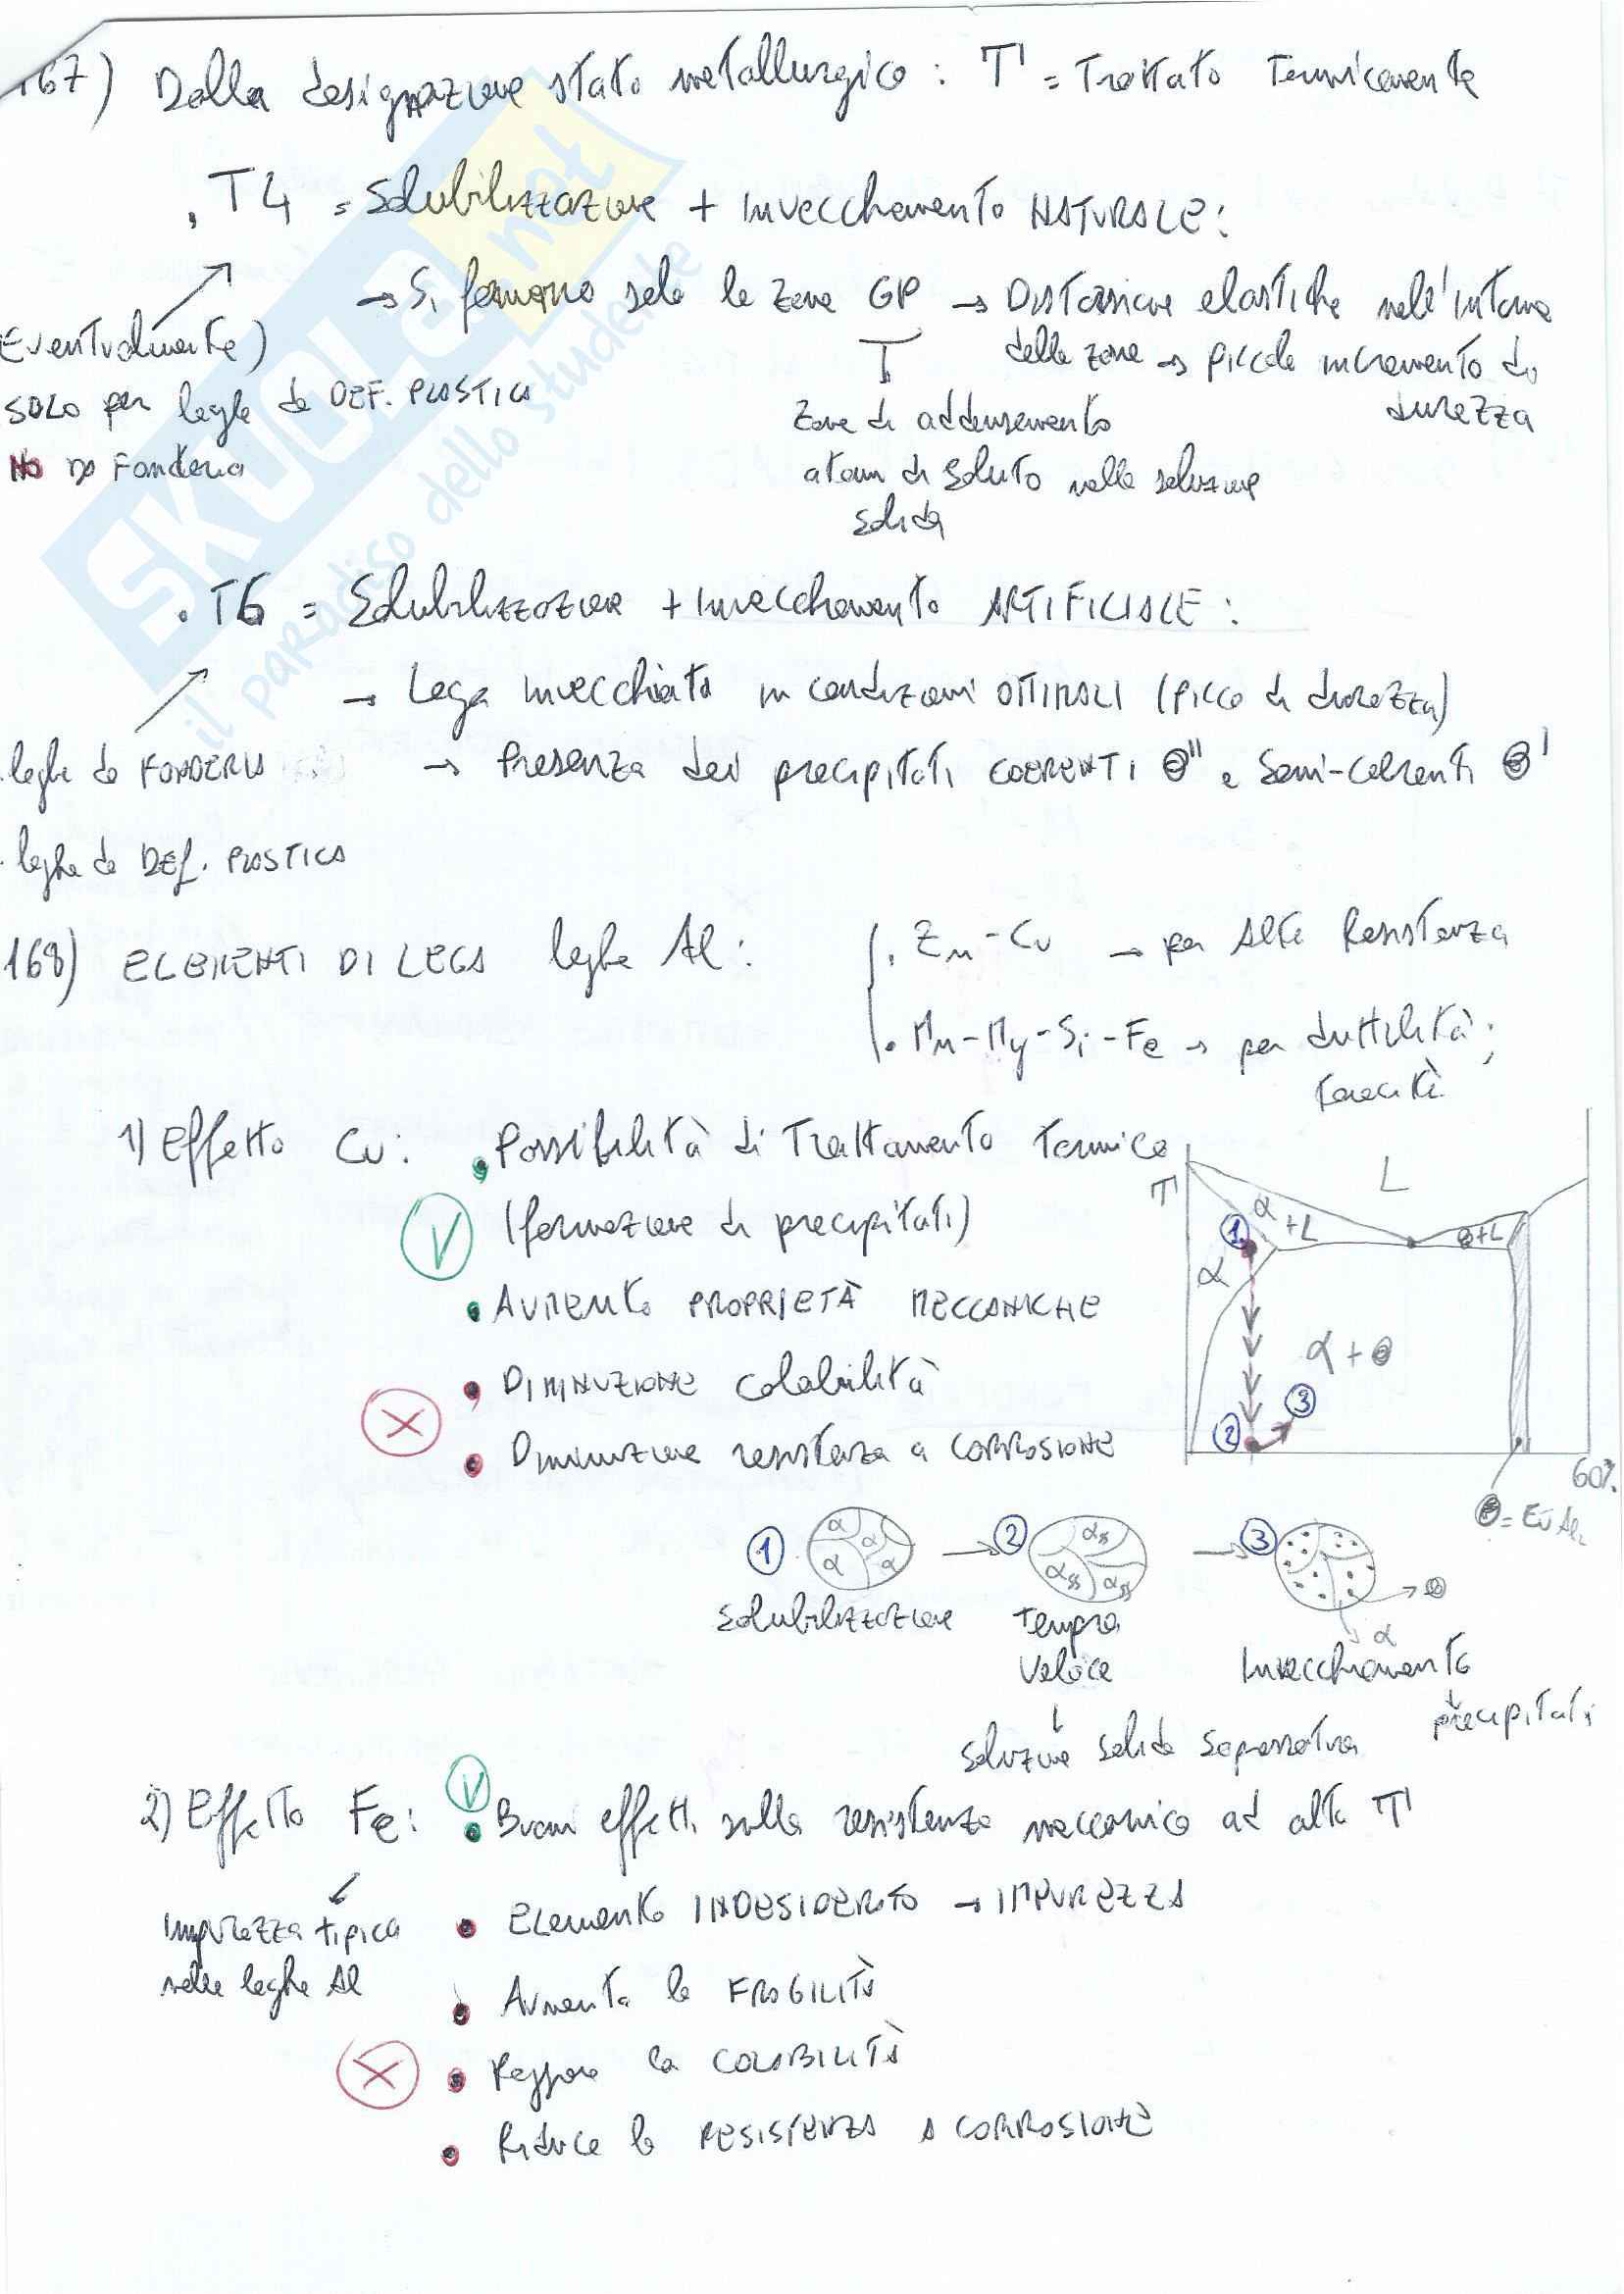 167) Dalla designazione stato metallurgico : T = Trattato Termicamente
. T4 = Solubilizzazione + Invecchiamento NATURALE :
→ Si formano solo le zone GP → Distorsione elastiche nell'intorno
delle zone → piccolo incremento di
durezza
Zone di addensamento
atomi di soluto nella soluzione
solida
Eventualmente)
SOLO per leghe da DEF. PLASTICA
No da Fonderia
. T6 = Solubilizzazione + Invecchiamento ARTIFICIALE :
→ Lega invecchiata in condizioni OTTIMALI (picco di durezza)
→ Presenza dei precipitati COERENTI θ'' e Semi-coerenti θ'
. leghe da FONDERIA
. leghe da DEF. PLASTICA
168) ELEMENTI DI LEGA leghe Al :
. Zn - Cu → per Alta Resistenza
. Mn - Mg - Si - Fe → per duttilità ;
tenacità
1) Effetto Cu : . Possibilità di Trattamento Termico
V (formazione di precipitati)
. AUMENTO PROPRIETÀ MECCANICHE
X . DIMINUZIONE colabilità
. Diminuzione resistenza a CORROSIONE
T
L
α + L
θ + L
α
α + θ
1
2
3
60%
θ = CuAl₂
1 α α α α → 2 αss αss αss → 3 θ
α
Solubilizzazione
Tempra
Veloce
↓
soluzione solida soprassatura
Invecchiamento
↓
precipitati
2) Effetto Fe : V . Buoni effetti sulla resistenza meccanica ad alta T
Impurezza tipica
nelle leghe Al
. Elemento INDESIDERATO → IMPUREZZA
. Aumenta la FRAGILITÀ
X . Peggiora la COLABILITÀ
. Riduce la RESISTENZA A CORROSIONE
SKUOLA.not
il paradiso dello studente